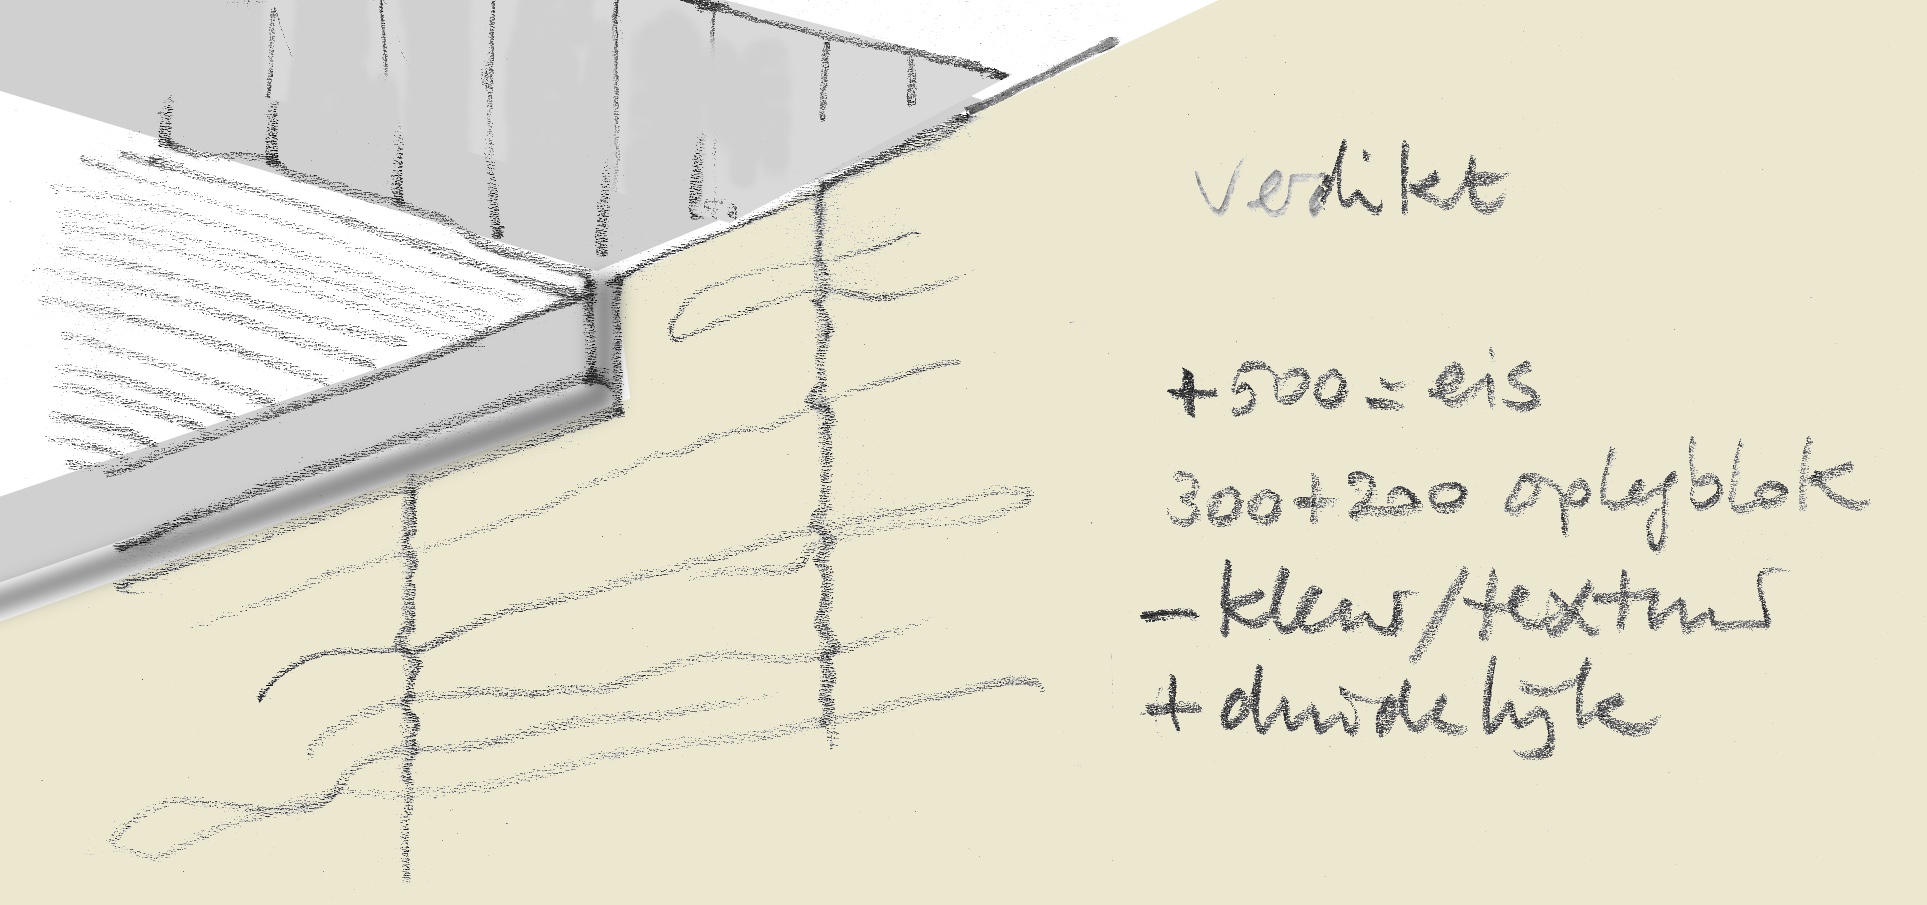 verdikt
+500 = eis
300+200 oplegblok
- kleur/textuur
+ duidelijk